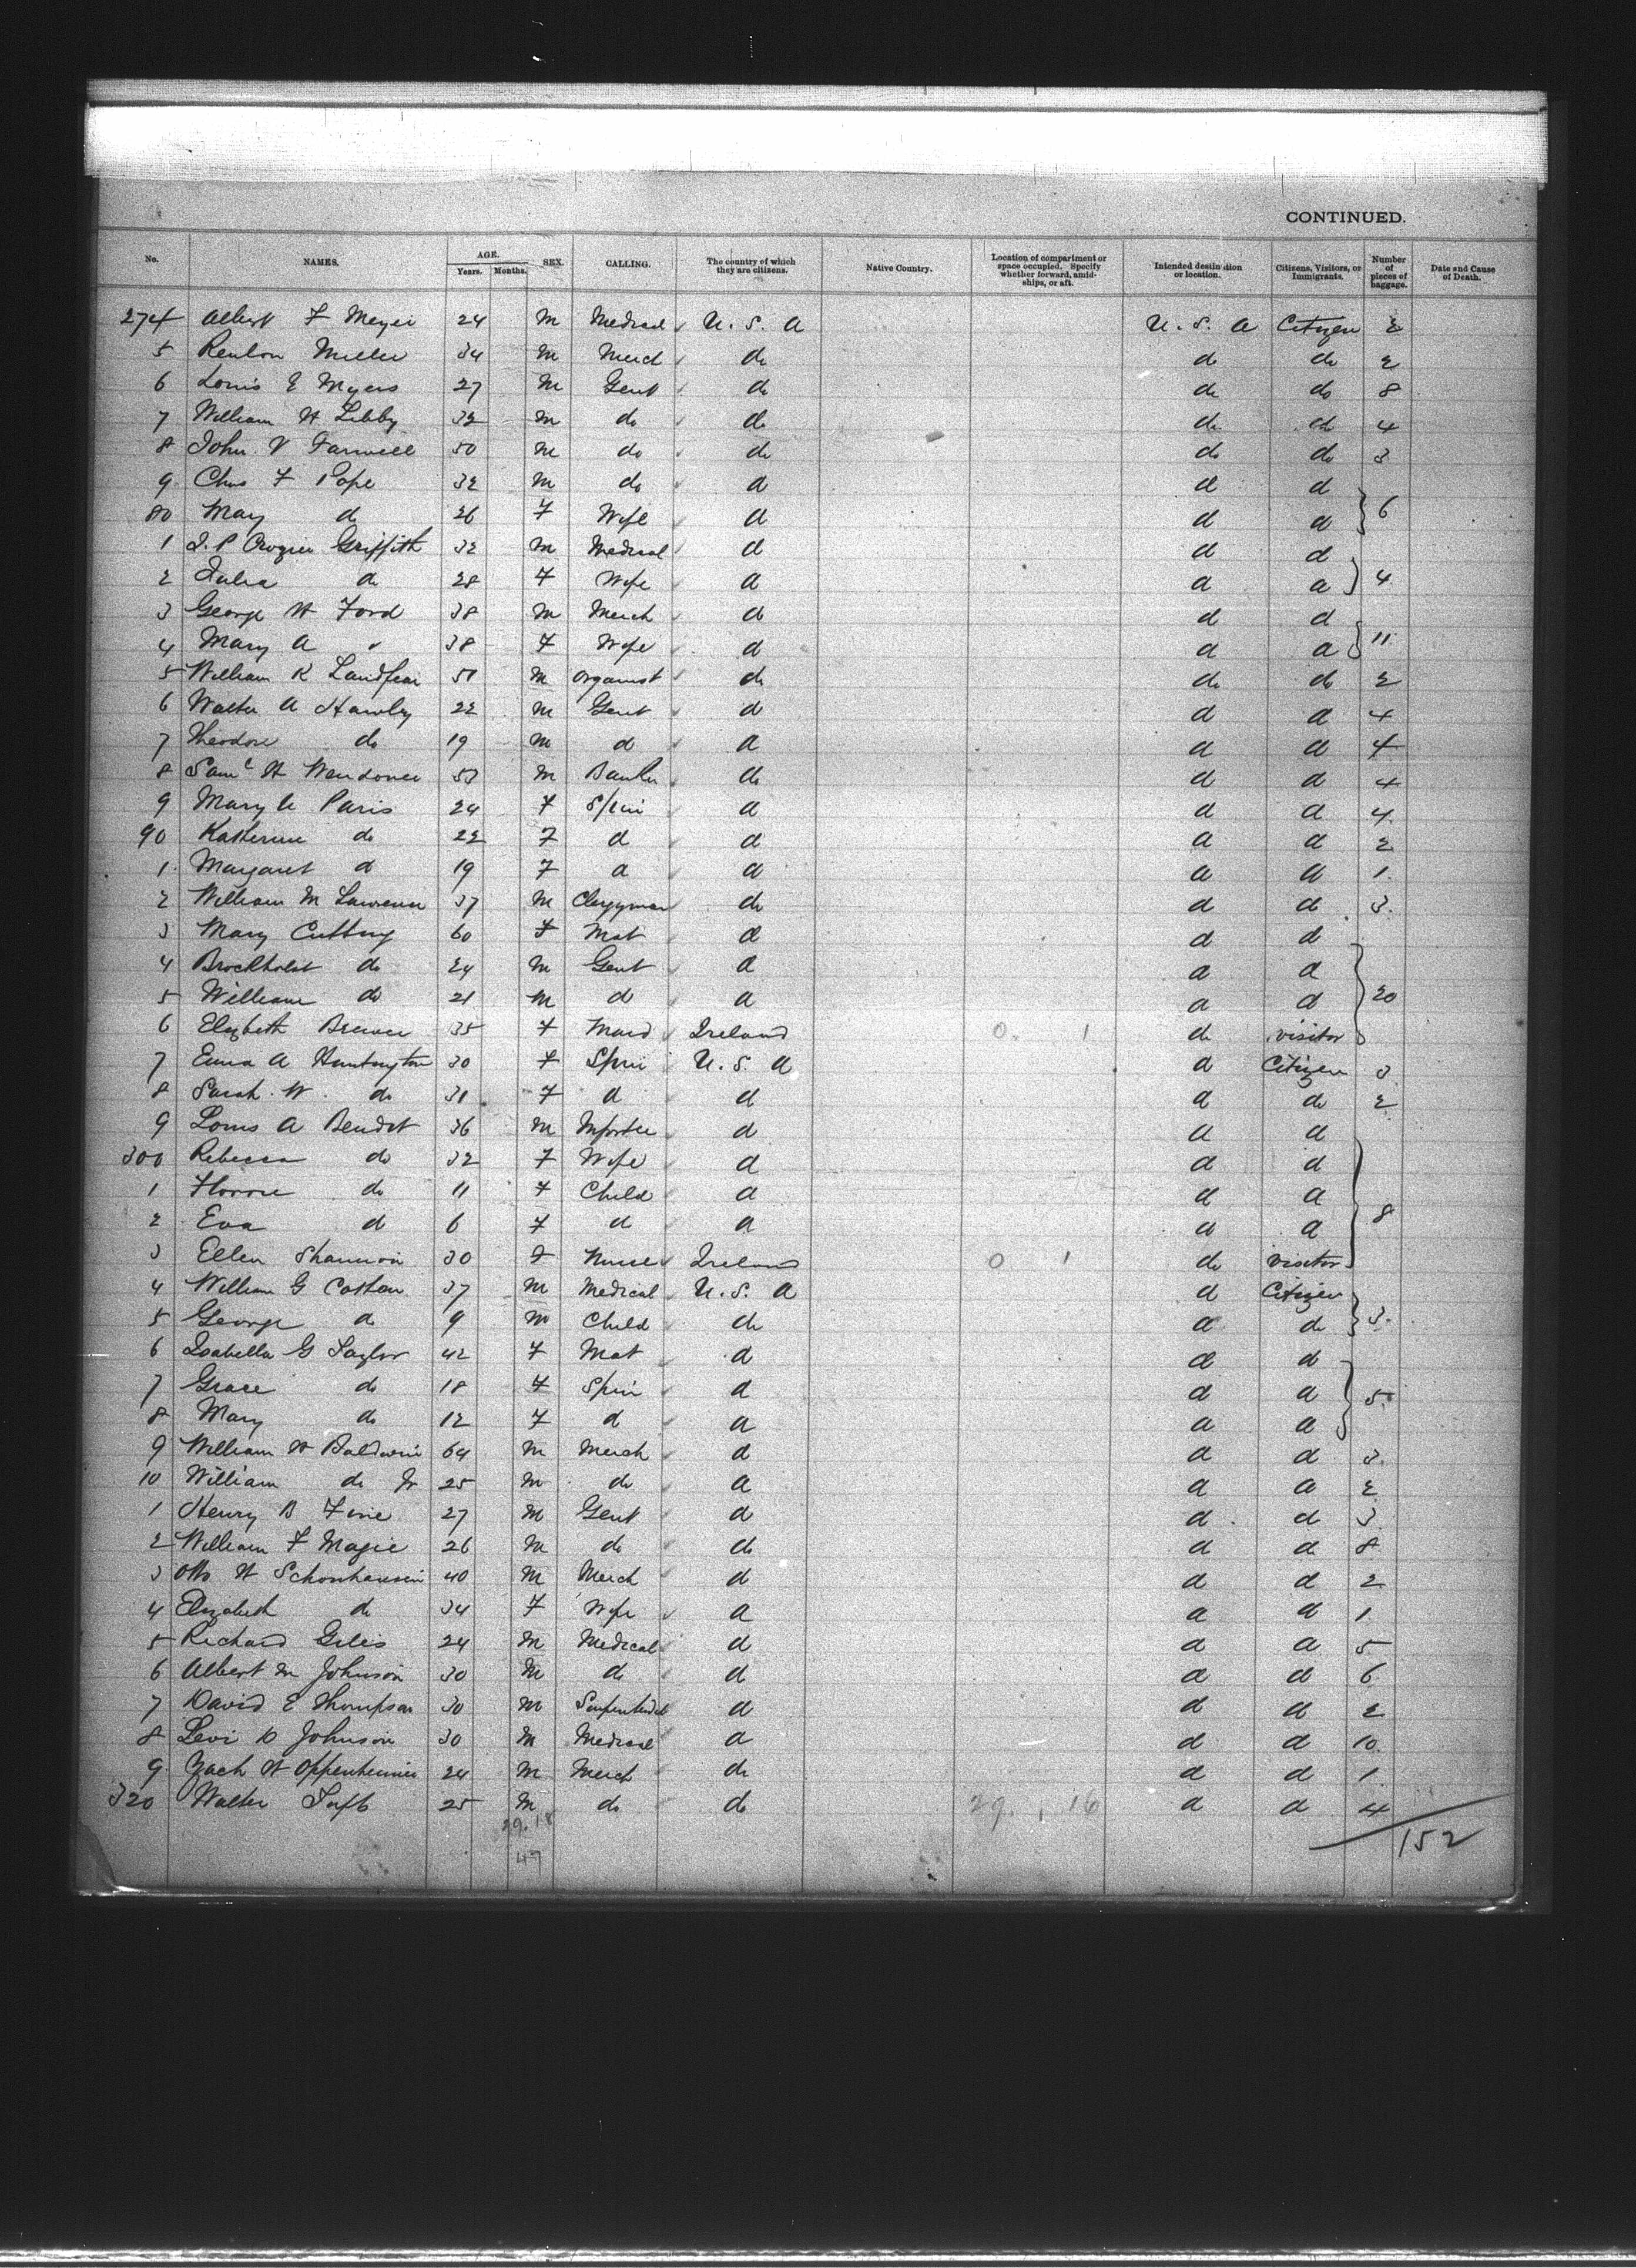 CONTINUED.
No. NAMES. AGE. Years. Months. SEX. CALLING. The country of which they are citizens. Native Country. Location of compartment or space occupied. Specify whether forward, amidships, or aft. Intended destination or location. Citizens, Visitors, or Immigrants. Number of pieces of baggage. Date and Cause of Death.
274 Albert F Meyer 24 M Medical U. S. A U. S. A Citizen 2
5 Miller 34 M Merch do do do 2
6 Louis E Myers 27 M Gent do do do 8
7 William H Libby 32 M do do do do 4
8 John V Farwell 50 M do do do do 3
9 Chas F Pope 32 M do do do do
80 May do 26 F Wife do do do 6
1 J. P Crozier Griffith 32 M Medical do do do
2 Julia do 28 F Wife do do do 4
3 George H Ford 38 M Merch do do do
4 Mary A " 38 F Wife do do do 11
5 William K Landfear 51 M Organist do do do 2
6 Walter A Hawley 22 M Gent do do do 4
7 Theodore do 19 M do do do do 4
8 Saml H Wendover 53 M Banker do do do 4
9 Mary Paris 24 F Spin do do do 4
90 Katherine do 22 F do do do do 2
1 Margaret do 19 F do do do do 1
2 William M Lawrence 37 M Clergyman do do do 3
3 Mary Cutting 60 F Mat do do do
4 Brockholst do 24 M Gent do do do
5 William do 21 M do do do do 20
6 Elizbeth 35 F Maid Ireland 0. 1 do visitor
7 Emma A Huntington 30 F Spin U. S. A do Citizen 3
8 Sarah W. do 31 F do do do do 2
9 Louis A Bendit 36 M Importer do do do
300 Rebecca do 32 F Wife do do do
1 Florrie do 11 F Child do do do
2 Eva do 6 F do do do do 8
3 Ellen Shannon 30 F Nurse Ireland 0 1 do visitor
4 William G 37 M Medical U. S. A do Citizen
5 George do 9 M Child do do do 3.
6 Isabella G Taylor 42 F Mat do do do
7 Grace do 18 F Spin do do do 5
8 Mary do 12 F do do do do
9 William H Baldwin 64 M Merch do do do 3
10 William do Jr 25 M do do do do 2
1 Henry B Fine 27 M Gent do do do 3
2 William F Magie 26 M do do do do 8
3 Otto H Schonhausen 40 M Merch do do do 2
4 Elizabeth do 34 F Wife do do do 1
5 Richard Giles 24 M Medical do do do 5
6 Albert M Johnson 30 M do do do do 6
7 David E Thompson 30 M do do do 2
8 Levi D Johnson 30 M Medical do do do 10
9 Zach H Oppenheimer 24 M Merch do do do 1
320 Walter Taft 25 M do do 29. 16 do do 4
29. 18
47
152